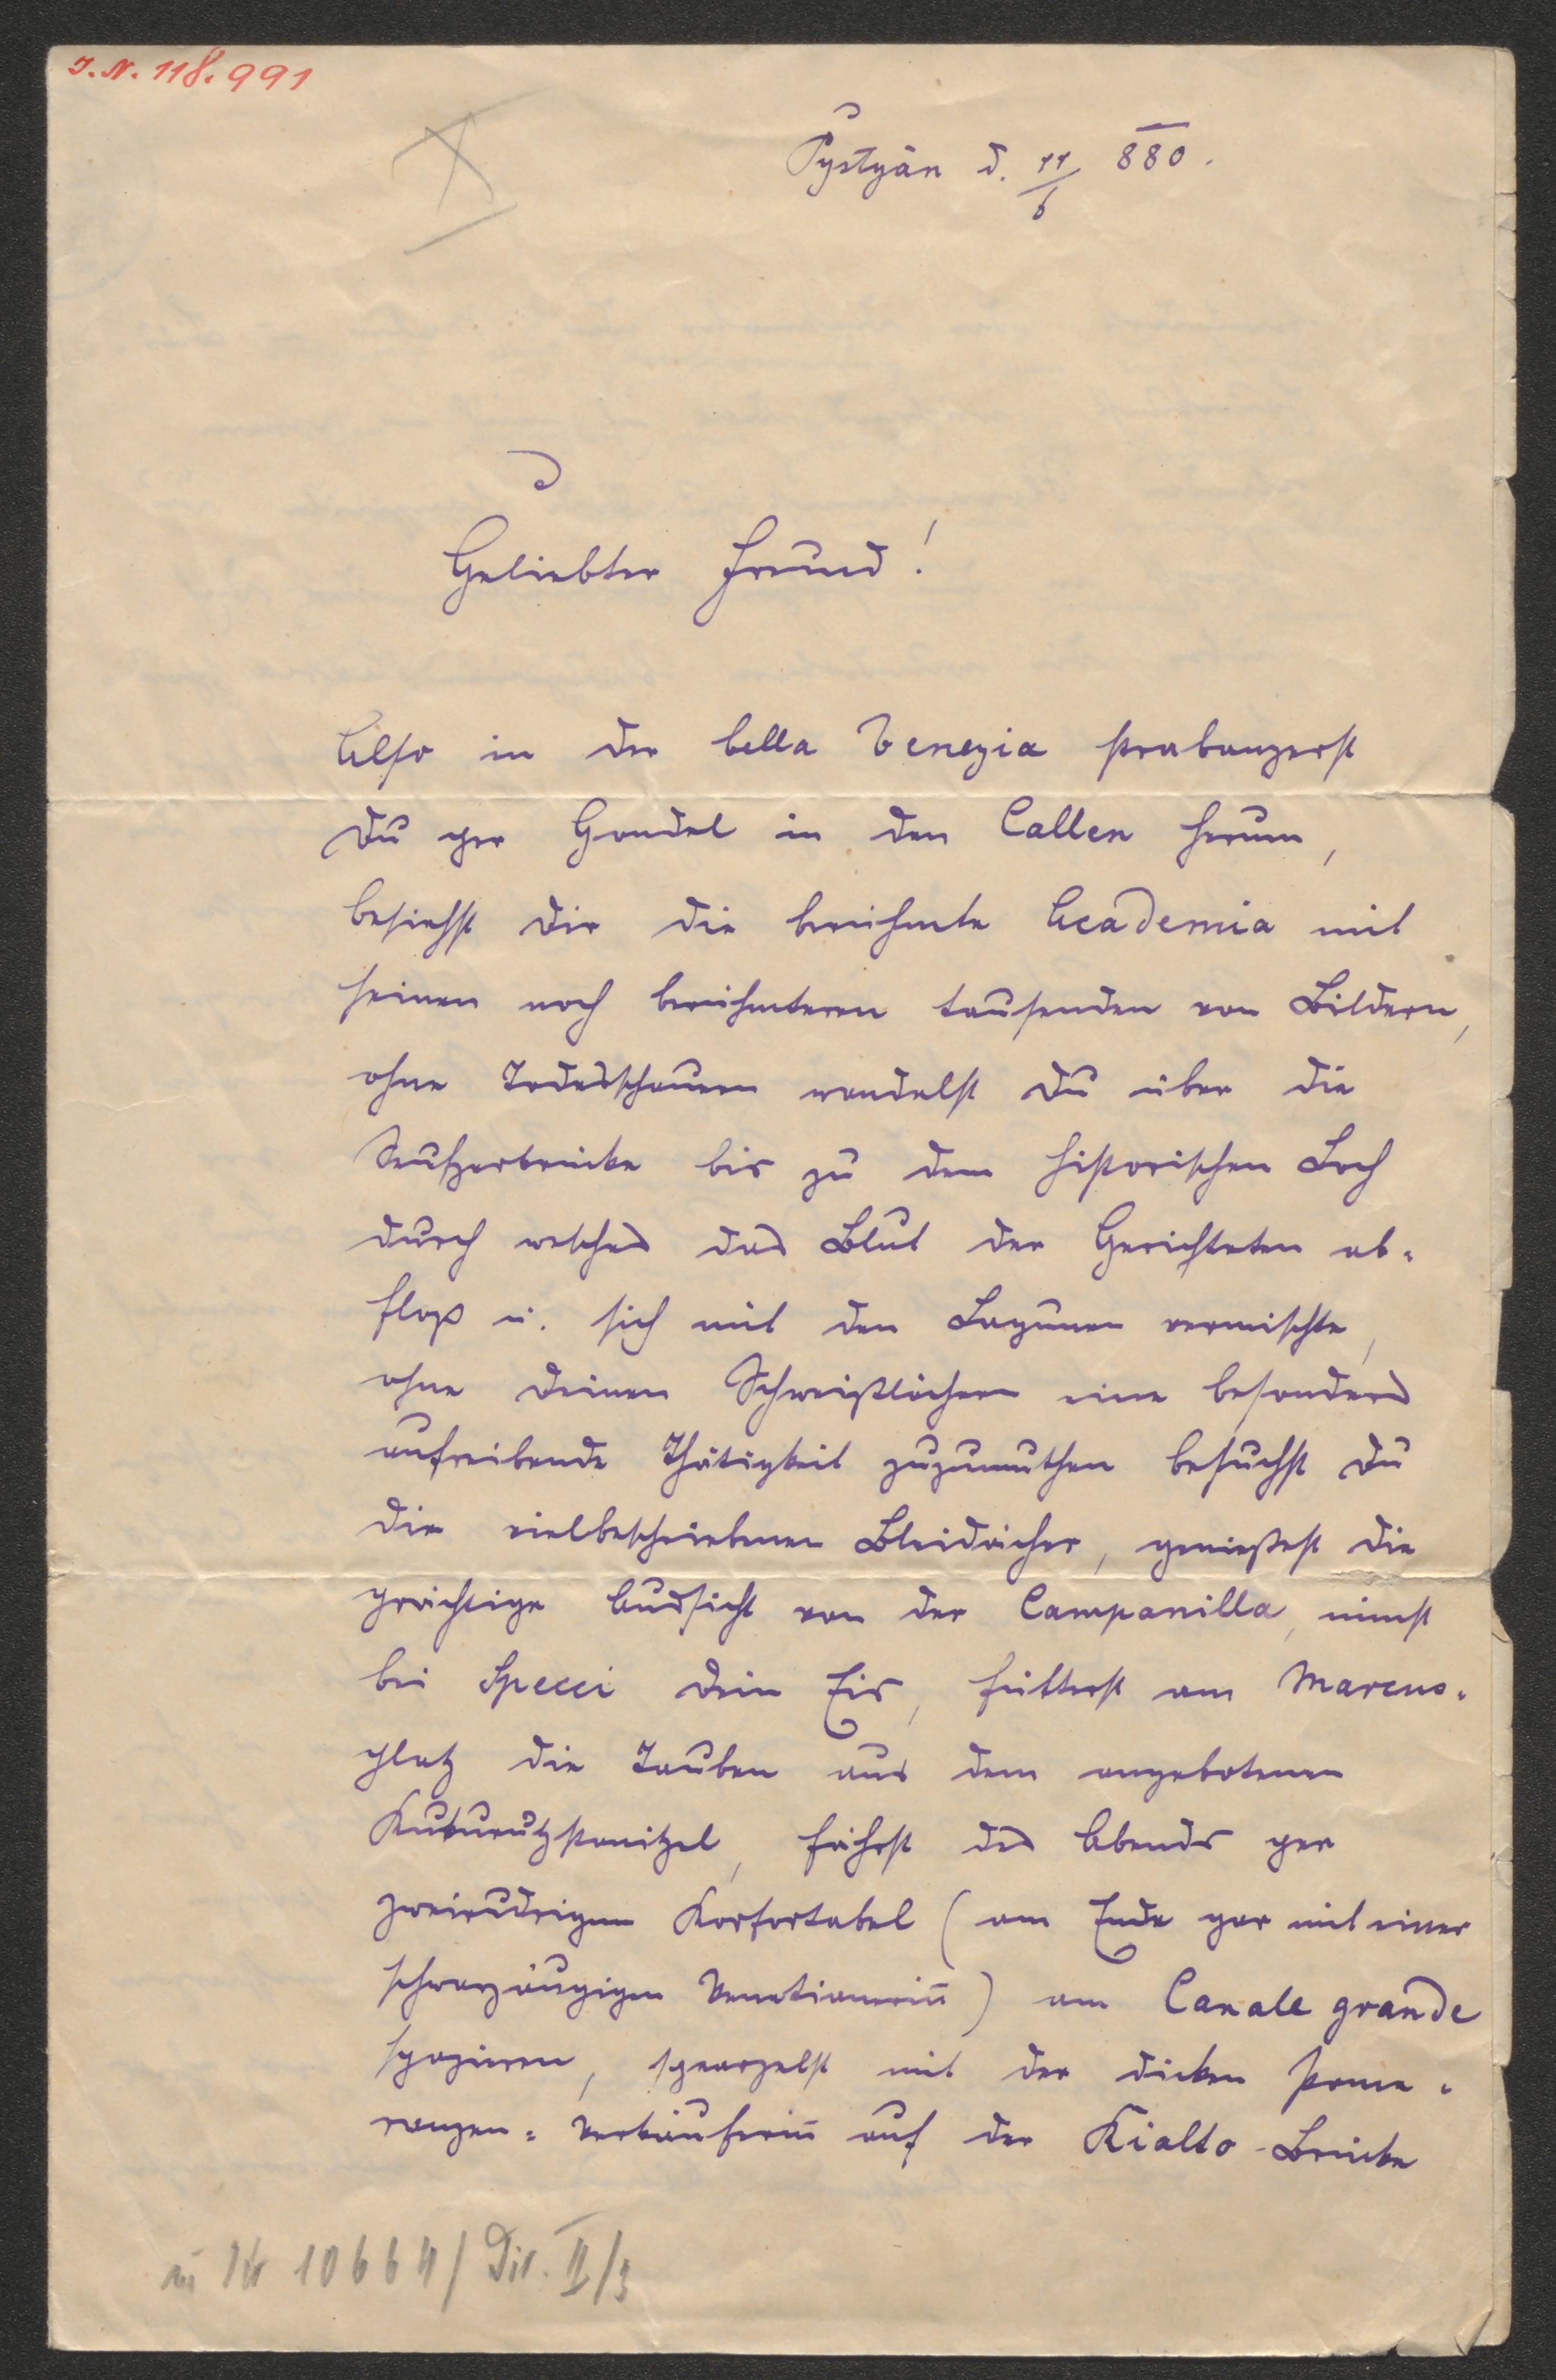 I.N. 118.991
X
Pystyán d. 11/6 880.
Geliebter Freund!
Also in der bella Venezia strabanzerst
Du per Gondel in den Callen herum,
besiehst Dir die berühmte Academia mit
seinen noch berühmteren tausenden von Bildern,
ohne Todesschauern wandelst Du über die
Seufzerbrücke bis zu dem historischen Loch
durch welches das Blut der Gerichteten ab-
floß u. sich mit den Lagunen vermischte,
ohne Deinen Schweißlöchern eine besonders
aufreibende Thätigkeit zuzumuthen besuchst Du
die vielbeschriebenen Bleidächer, genießest die
prächtige Aussicht von der Campanilla, nimst
bei Specci Dein Eis, futterst am Marcus-
platz die Tauben aus dem angebotenen
Kukurutzstanitzel, fährst des Abends per
zweirudrigem Korfortabel (am Ende gar mit einer
schwarzäugigen Venetianerin̄) am Canale grande
spaziren, schwarzelst mit der dicken Pome-
ranzen-Verkäuferin̄ auf der Rialto-Brücke
zu Nr 10664/Dir. II/3